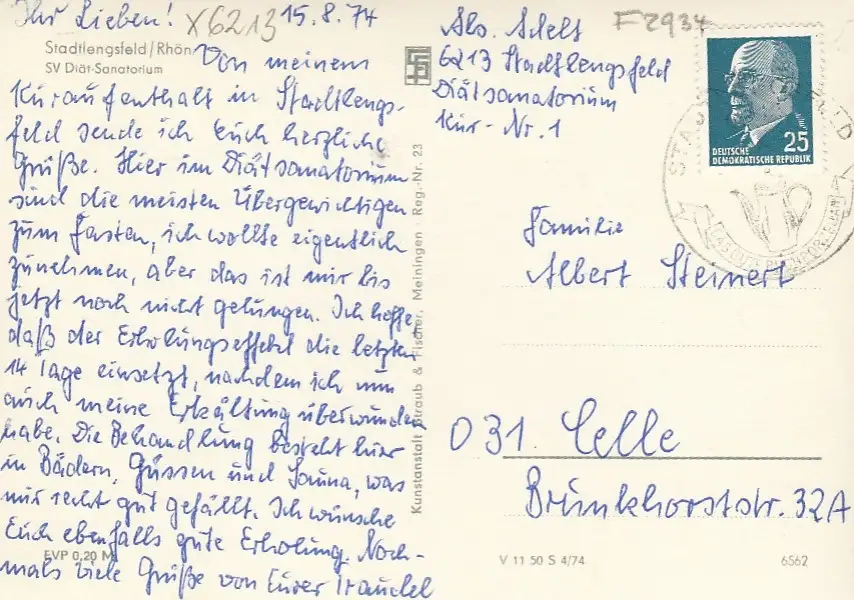 Ihr Lieben! X6213 15.8.74
Stadtlengsfeld/Rhön
SV Diät-Sanatorium
Von meinem
Kuraufenthalt in Stadtlengs-
feld sende ich Euch herzliche
Grüße. Hier im Diätsanatorium
sind die meisten Übergewichtigen
zum fasten, ich wollte eigentlich
zunehmen, aber das ist mir bis
jetzt noch nicht gelungen. Ich hoffe,
daß der Erholungseffekt die letzten
14 Tage einsetzt, nachdem ich nun
auch meine Erkältung überwunden
habe. Die Behandlung besteht hier
in Bädern, Güssen und Sauna, was
mir recht gut gefällt. Ich wünsche
Euch ebenfalls gute Erholung. Noch-
mals viele Grüße von Eurer Traudel
EVP 0,20 M
Kunstanstalt Straub & Fischer, Meiningen Reg.-Nr. 23
F2934
Abs. Adelt
6213 Stadtlengsfeld
Diätsanatorium
Kur-Nr. 1
25
DEUTSCHE
DEMOKRATISCHE REPUBLIK
Familie
Albert Steinert
031. Celle
Brunkhorststr. 32A
V 11 50 S 4/74
6562